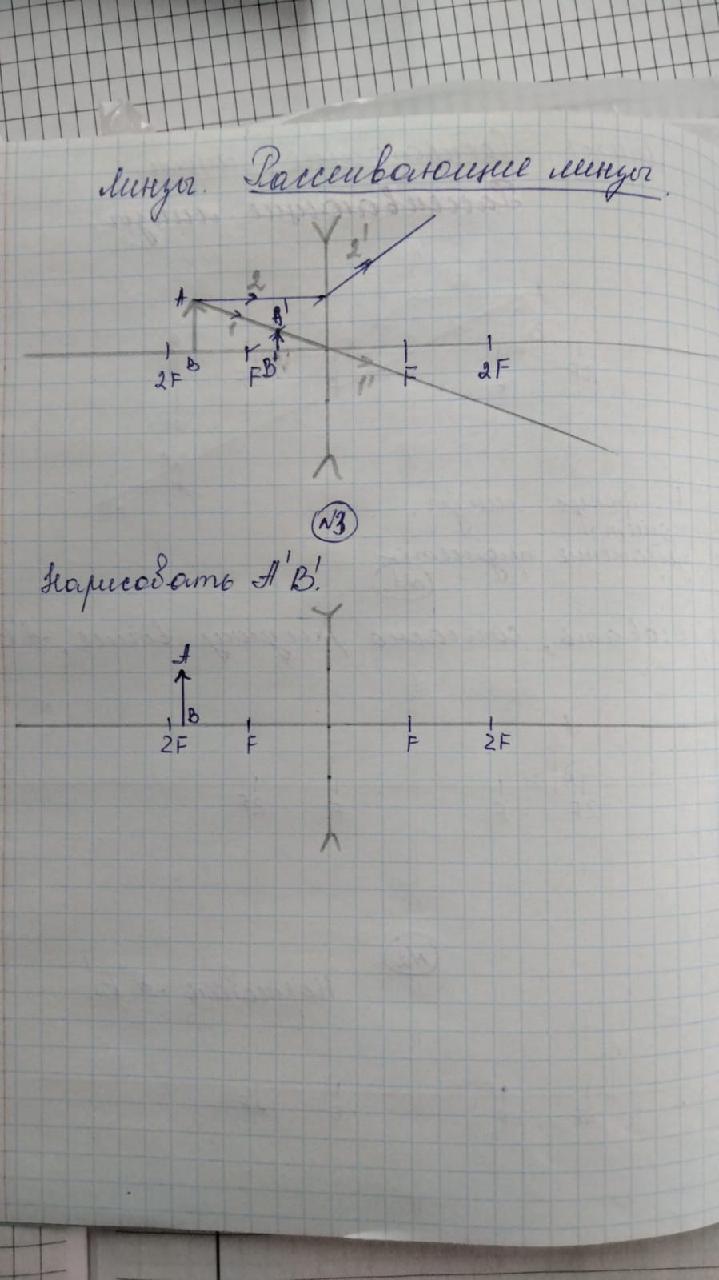 Линзы. Рассеивающие линзы.
2'
A 2
1 A'
2F B F B' F 2F
1'
N3
Нарисовать A'B'.
A
B
2F F F 2F